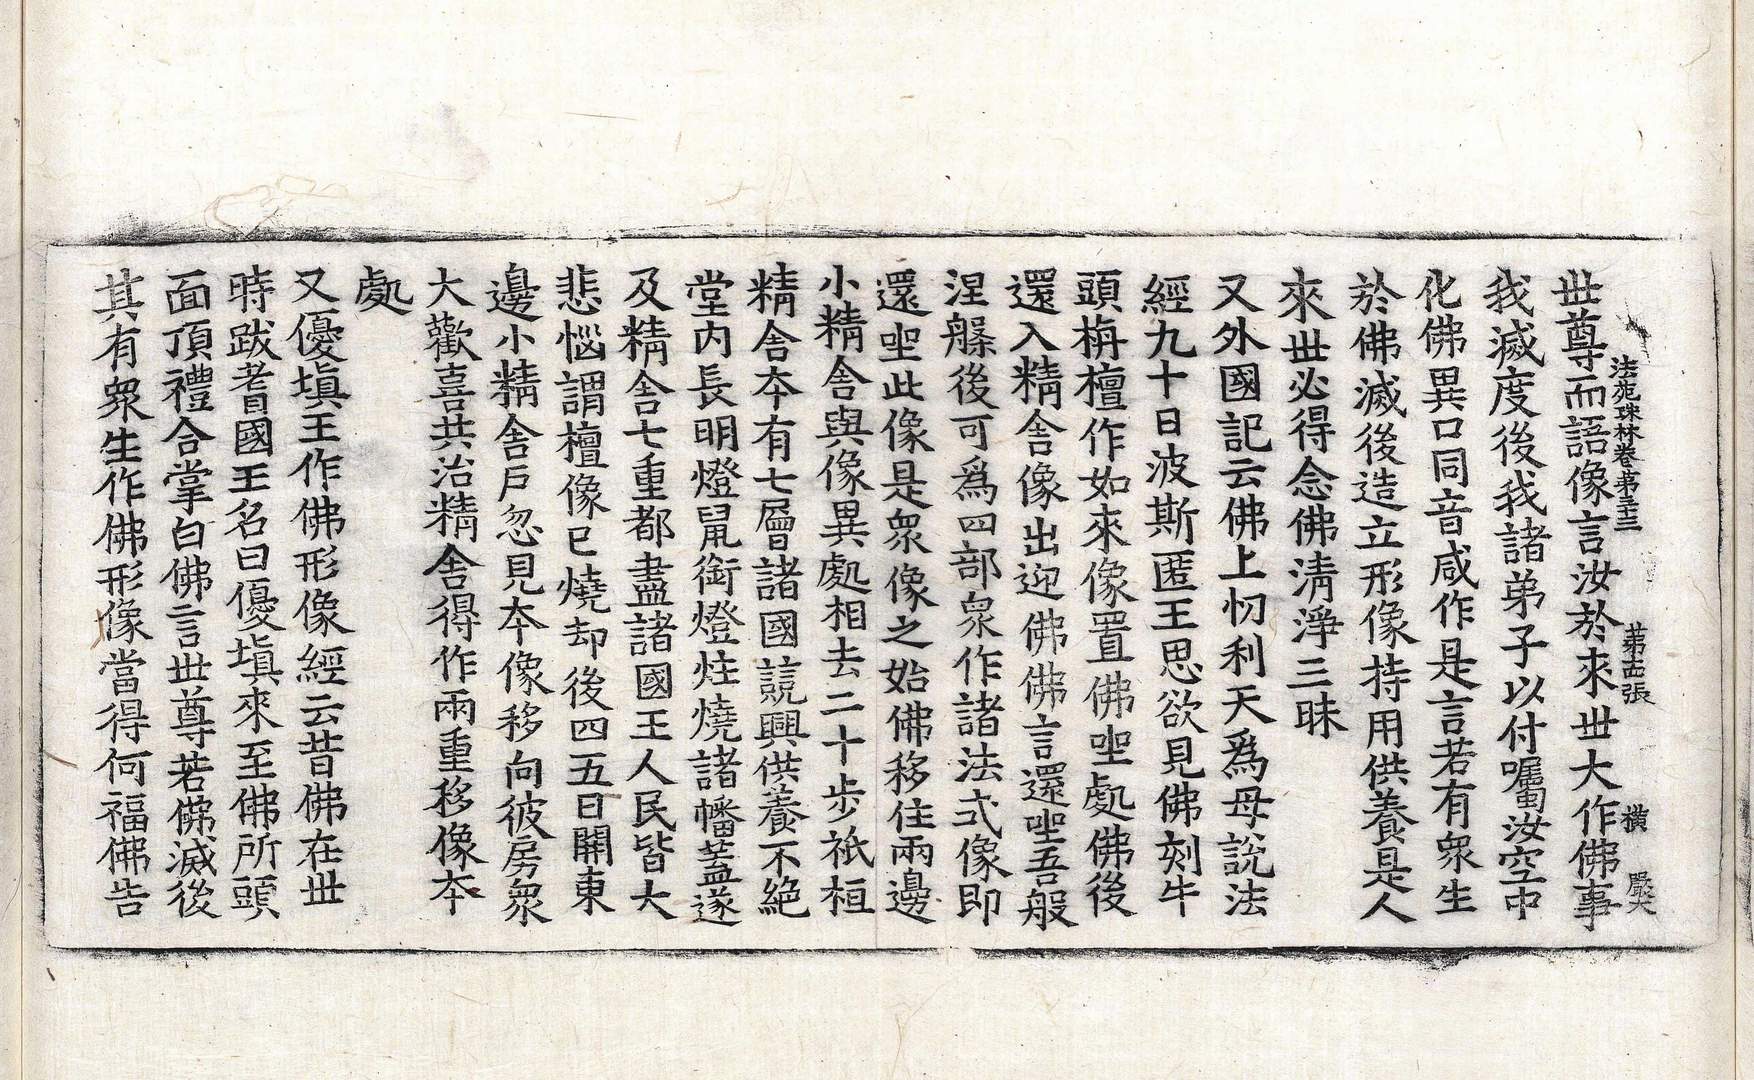 法苑珠林卷第三十三 第十四張 橫 嚴大
世尊而語像言汝於來世大作佛事
我滅度後我諸弟子以付囑汝空中
化佛異口同音咸作是言若有衆生
於佛滅後造立形像持用供養是人
來世必得念佛淸淨三昧
又外國記云佛上忉利天爲母說法
經九十日波斯匿王思欲見佛刻牛
頭栴檀作如來像置佛坐處佛後
還入精舍像出迎佛佛言還坐吾般
涅槃後可爲四部衆作諸法式像即
還坐此像是衆像之始佛移住兩邊
小精舍與像異處相去二十步祇桓
精舍本有七層諸國競興供養不絕
堂內長明燈鼠銜燈炷燒諸幡蓋遂
及精舍七重都盡諸國王人民皆大
悲惱謂檀像已燒却後四五日開東
邊小精舍戶忽見本像移向彼房衆
大歡喜共治精舍得作兩重移像本
處
又優塡王作佛形像經云昔佛在世
時跋耆國王名曰優塡來至佛所頭
面頂禮合掌白佛言世尊若佛滅後
其有衆生作佛形像當得何福佛告